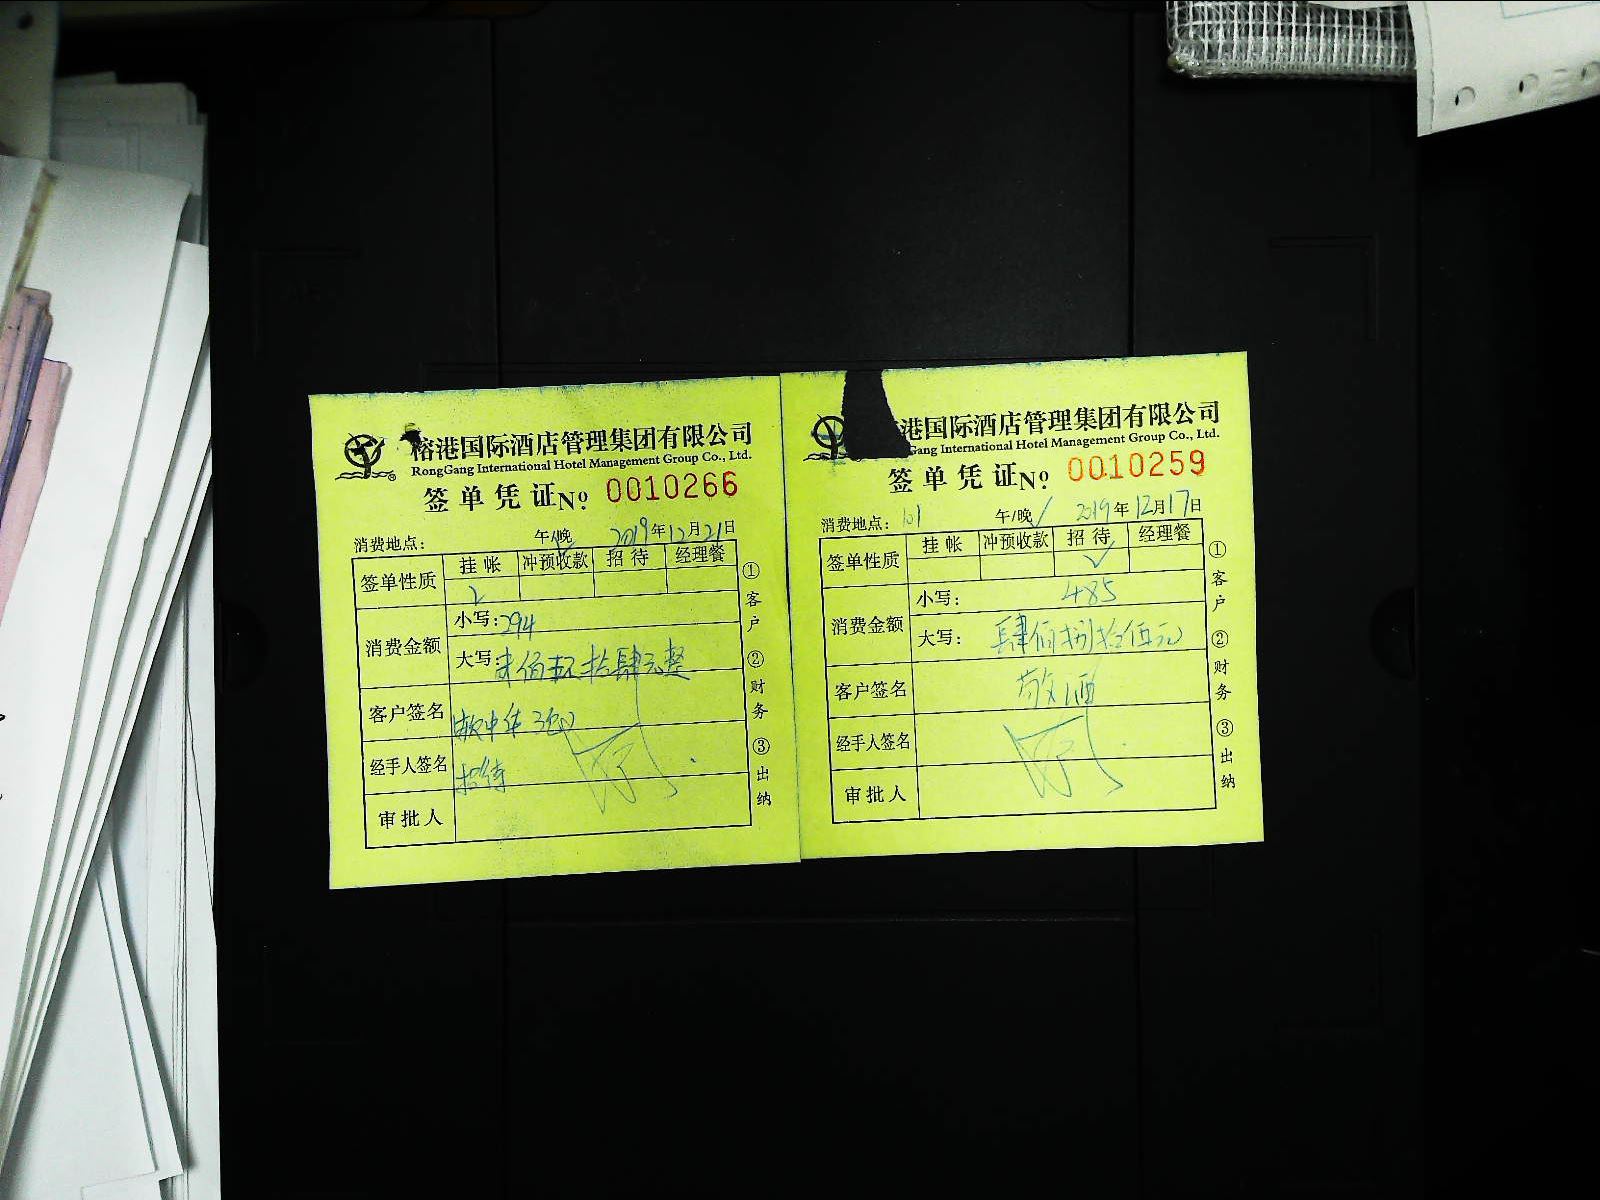 榕港国际酒店管理集团有限公司
RongGang International Hotel Management Group Co., Ltd.
签单凭证 No. 0010266
消费地点: 午/晚 2019年12月21日
签单性质 挂帐 冲预收款 招待 经理餐
消费金额
小写: 294
大写 佰 拾肆元整
客户签名 软中华3包
经手人签名 招待
审批人
①客户 ②财务 ③出纳
港国际酒店管理集团有限公司
Gang International Hotel Management Group Co., Ltd.
签单凭证 No. 0010259
消费地点: 101 午/晚 2019年12月17日
签单性质 挂帐 冲预收款 招待 经理餐
消费金额
小写: 485
大写: 肆佰捌拾伍元
客户签名 敬酒
经手人签名
审批人
①客户 ②财务 ③出纳